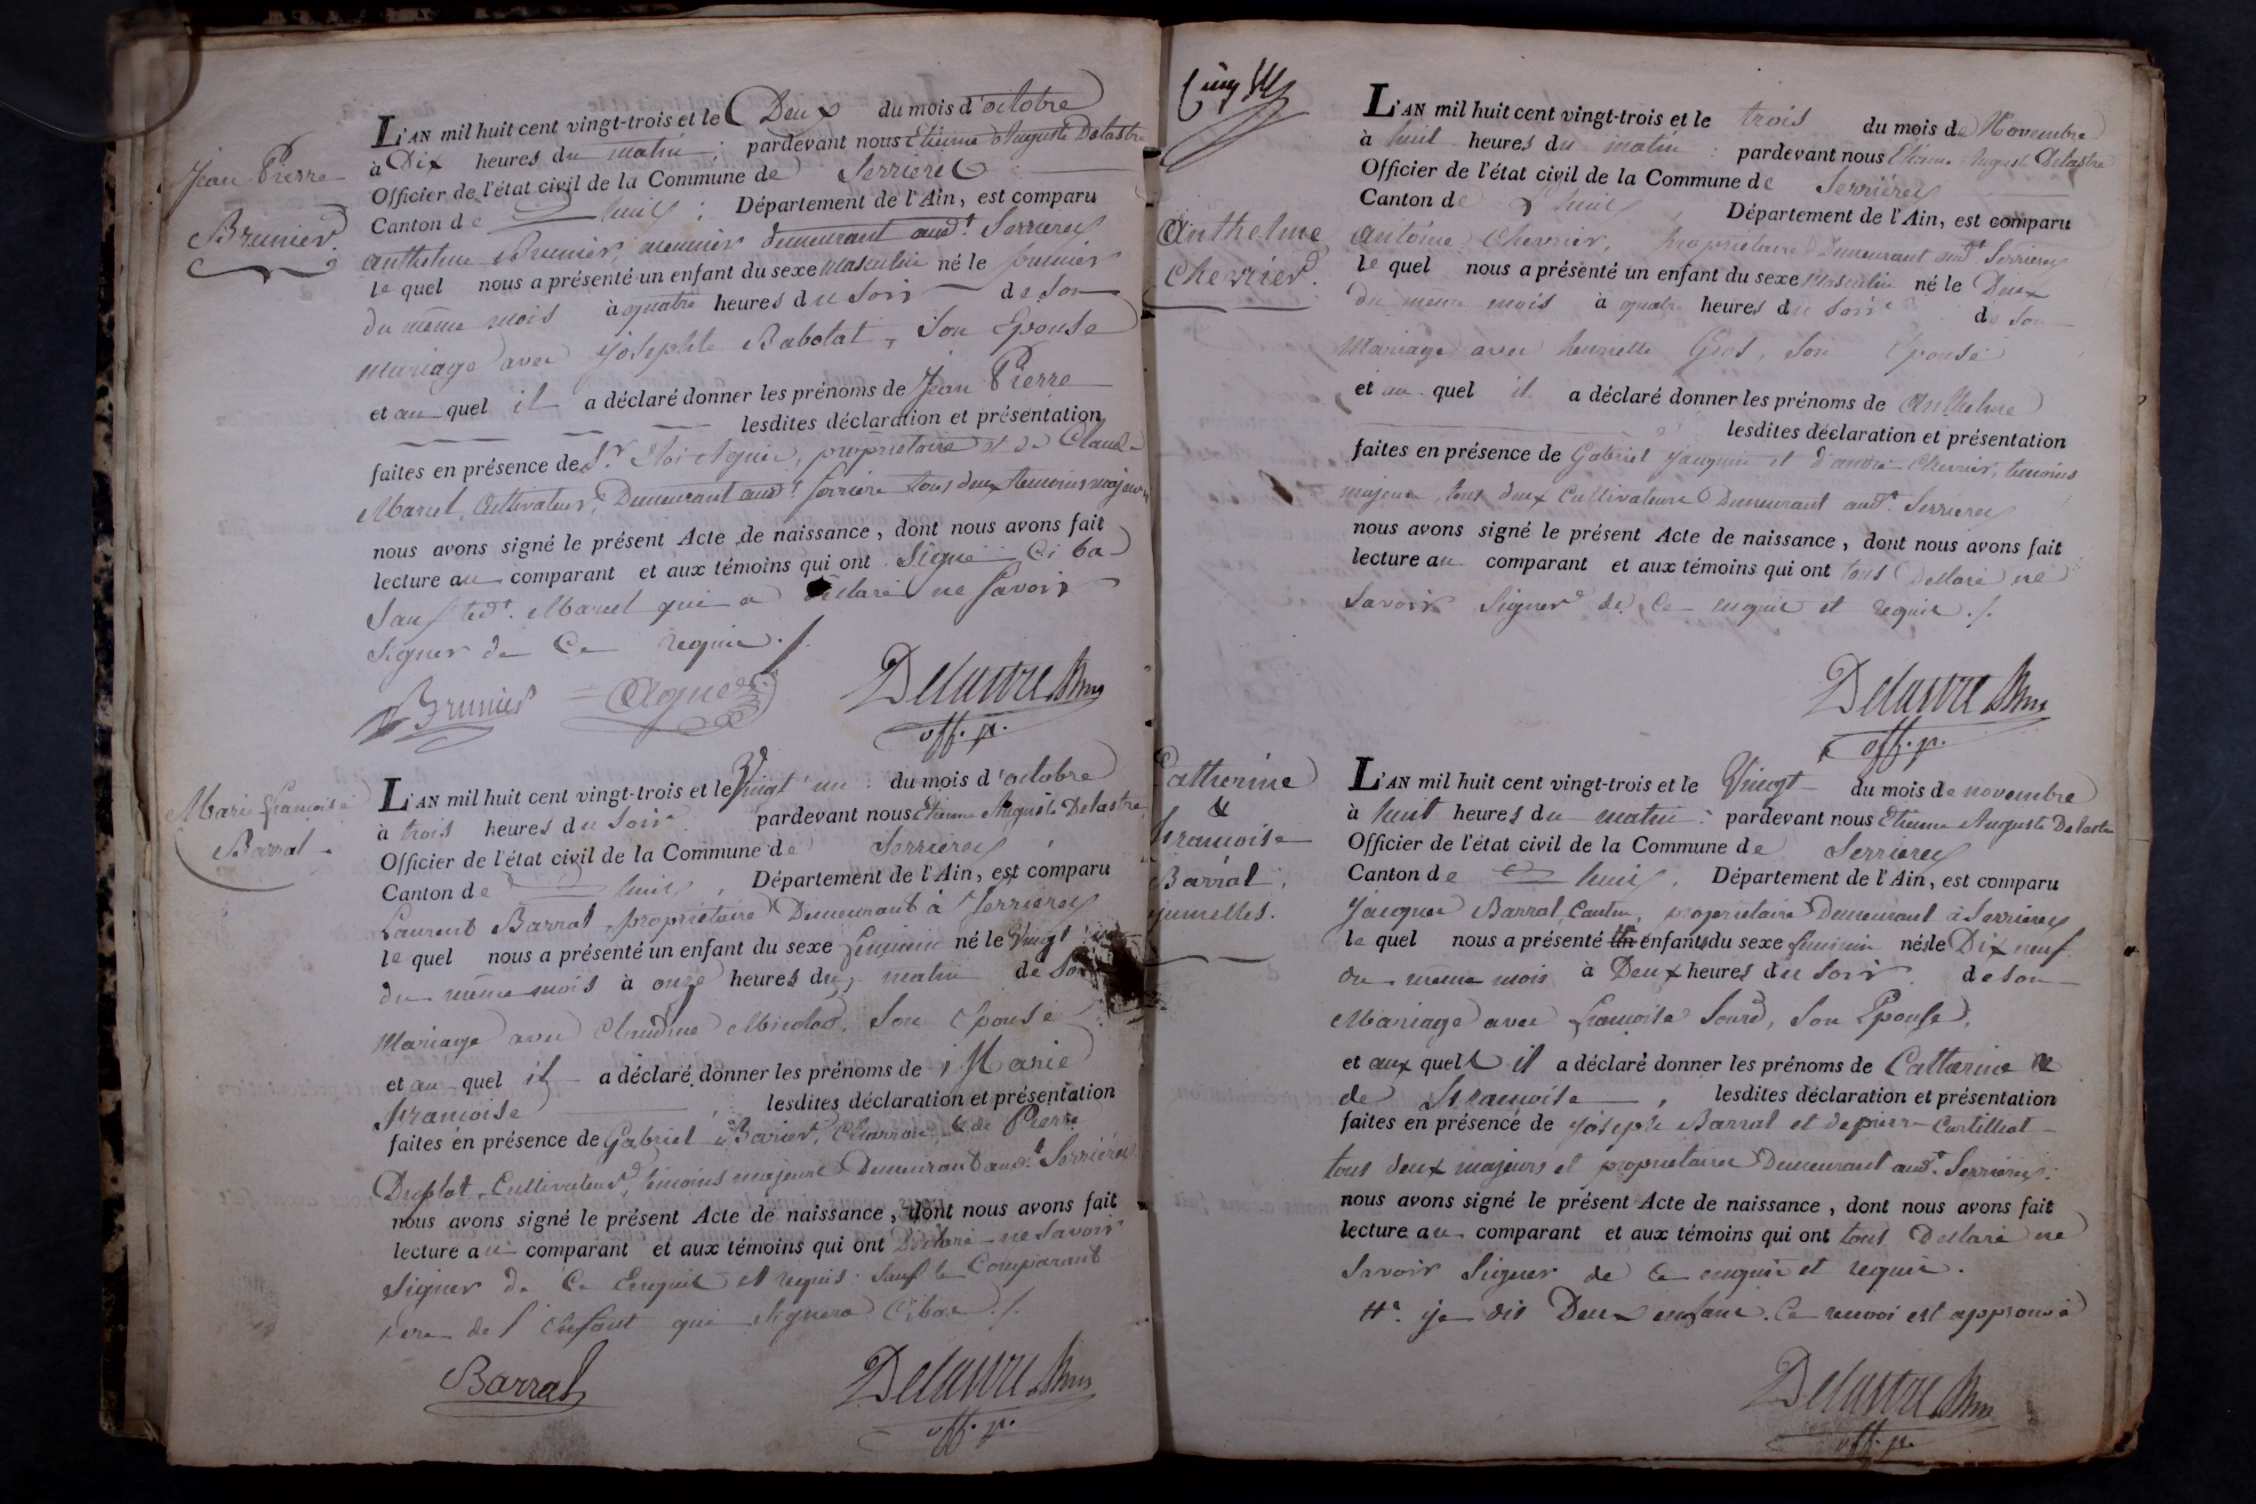 Jean Pierre
Brunier.
L'AN mil huit cent vingt-trois et le Deux du mois d'octobre
à Dix heures du matin ; pardevant nous Etienne Auguste Delastre
Officier de l'état civil de la Commune de Serrieres
Canton de huis ; Département de l'Ain, est comparu
anthelme Brunier, meunier demeurant aud.t Serrieres
le quel nous a présenté un enfant du sexe masculin né le premier
du même mois à quatre heures du soir de son
mariage avec Josephte Babolat, son Epouse
et au quel il a déclaré donner les prénoms de Jean Pierre
lesdites déclaration et présentation
faites en présence de S.r , propriétaire et de Claude
Marcel, Cultivateur, Demeurant aud.t serriere tous deux temoins majeurs
nous avons signé le présent Acte de naissance, dont nous avons fait
lecture au comparant et aux témoins qui ont signé Ci bas
Sauf led.t Marcel qui a déclaré ne savoir
signer de Ce requis ./.
Brunier Delastre
off. p.
Marie françoise
Barral
L'AN mil huit cent vingt-trois et le Vingt un : du mois d'octobre
à trois heures du soir pardevant nous Etienne Auguste Delastre
Officier de l'état civil de la Commune de Serrieres
Canton de huis, Département de l'Ain, est comparu
Laurent Barral, propriétaire Demeurant à Serrieres
le quel nous a présenté un enfant du sexe feminin né le Vingt un
du même mois à onze heures du matin de son
mariage avec Claudine , son Epouse
et au quel il a déclaré donner les prénoms de Marie
françoise lesdites déclaration et présentation
faites en présence de Gabriel , Charron & de Pierre
Cultivateur, témoins majeurs Demeurant aud.t Serriéres
nous avons signé le présent Acte de naissance, dont nous avons fait
lecture au comparant et aux témoins qui ont Déclaré ne savoir
signer de Ce Enquis et requis. Sauf le Comparant
pere de l'Enfant qui signera Cibas ./.
Barral Delastre
off. p.
Anthelme
Chevrier.
L'AN mil huit cent vingt-trois et le trois du mois de Novembre
à huit heures du matin : pardevant nous Etienne Auguste Delastre
Officier de l'état civil de la Commune de Serriéres
Canton de huis, Département de l'Ain, est comparu
antoine Chevrier, propriétaire Demeurant aud.t Serrieres
le quel nous a présenté un enfant du sexe masculin né le Deux
du meme mois à quatre heures du soir de son
mariage avec henriette Gros, son Epouse
et au quel il a déclaré donner les prénoms de Anthelme
lesdites déclaration et présentation
faites en présence de Gabriel et d'andré Chevrier, temoins
majeurs, tous deux Cultivateurs Demeurant aud.t Serrieres
nous avons signé le présent Acte de naissance, dont nous avons fait
lecture au comparant et aux témoins qui ont tous Déclaré ne
savoir signer de Ce enquis et requis ./.
Delastre
off. p.
Catherine
&
francoise
Barral,
jumelles.
L'AN mil huit cent vingt-trois et le Vingt du mois de novembre
à huit heures du matin : pardevant nous Etienne Auguste Delastre
Officier de l'état civil de la Commune de Serrieres
Canton de huis, Département de l'Ain, est comparu
Jacques Barral , propriétaire Demeurant à Serrieres
le quel nous a présenté un enfants du sexe feminin nés le Dix neuf
du meme mois à Deux heures du soir de son
Mariage avec françoise , son Epouse,
et aux quels il a déclaré donner les prénoms de Catherine &
de francoise, lesdites déclaration et présentation
faites en présence de Joseph Barral et de pierre
tous deux majeurs et propriétaires Demeurant aud.t Serrieres.
nous avons signé le présent Acte de naissance, dont nous avons fait
lecture au comparant et aux témoins qui ont tous Déclaré ne
savoir signer de Ce enquis et requis.
je dis Deux enfans. Ce renvoi est approuvé
Delastre
off. p.